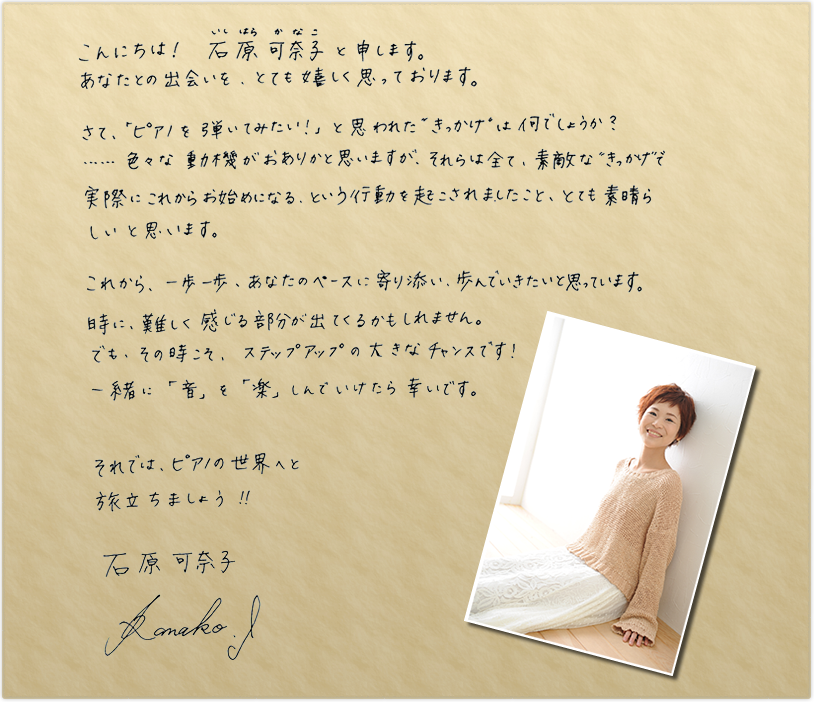 いしはら かなこ
こんにちは! 石原 可奈子 と申します。
あなたとの出会いを、とても嬉しく思っております。
さて、「ピアノを弾いてみたい!」と思われた"きっかけ"は何でしょうか?
…… 色々な動機がおありかと思いますが、それらは全て、素敵な"きっかけ"で
実際にこれからお始めになる、という行動を起こされましたこと、とても素晴ら
しいと思います。
これから、一歩一歩、あなたのペースに寄り添い、歩んでいきたいと思っています。
時に、難しく感じる部分が出てくるかもしれません。
でも、その時こそ、ステップアップの大きなチャンスです!
一緒に「音」を「楽」しんでいけたら幸いです。
それでは、ピアノの世界へと
旅立ちましょう!!
石原 可奈子
Kanako.I